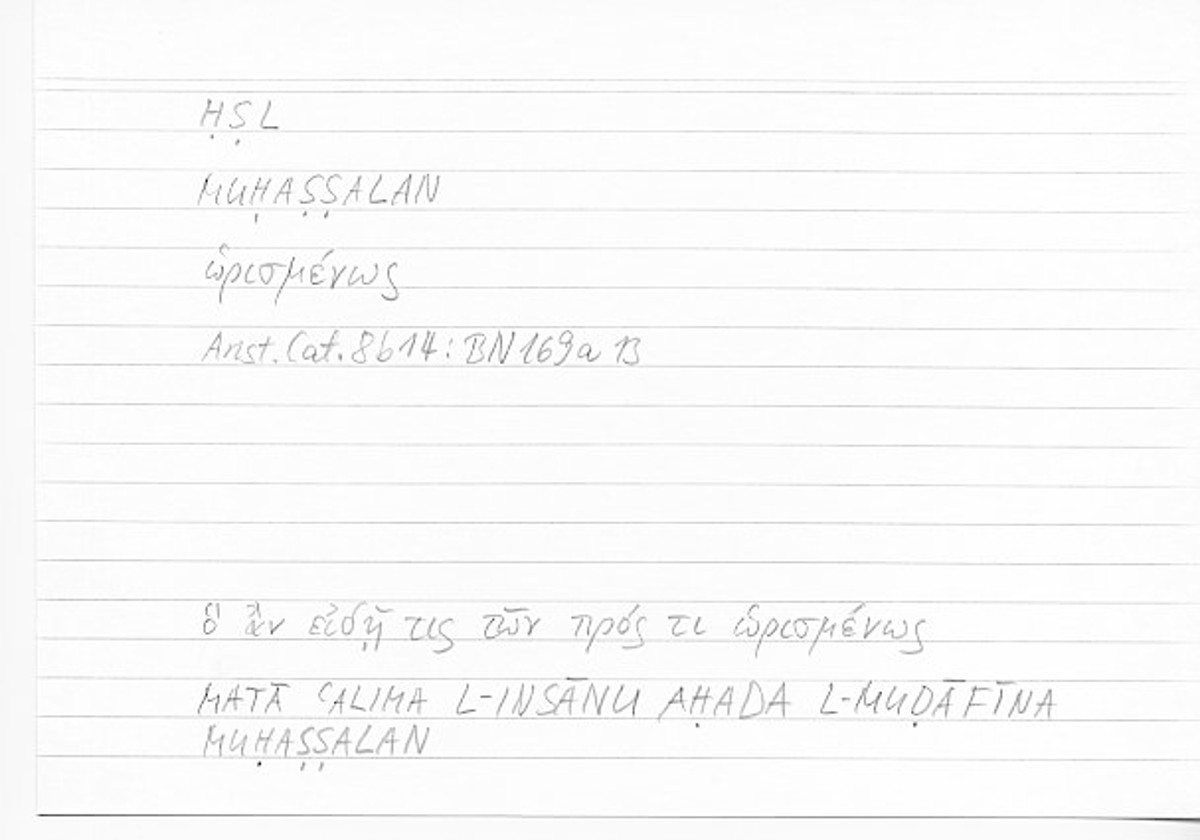 ḤṢL
MUḤAṢṢALAN
ὡρισμένως
Arist. Cat. 8b14: BN 169a 13
ὃ ἂν εἰδῇ τις τῶν πρός τι ὡρισμένως
MATĀ ʿALIMA L-INSĀNU AḤADA L-MUḌĀFĪNA
MUḤAṢṢALAN